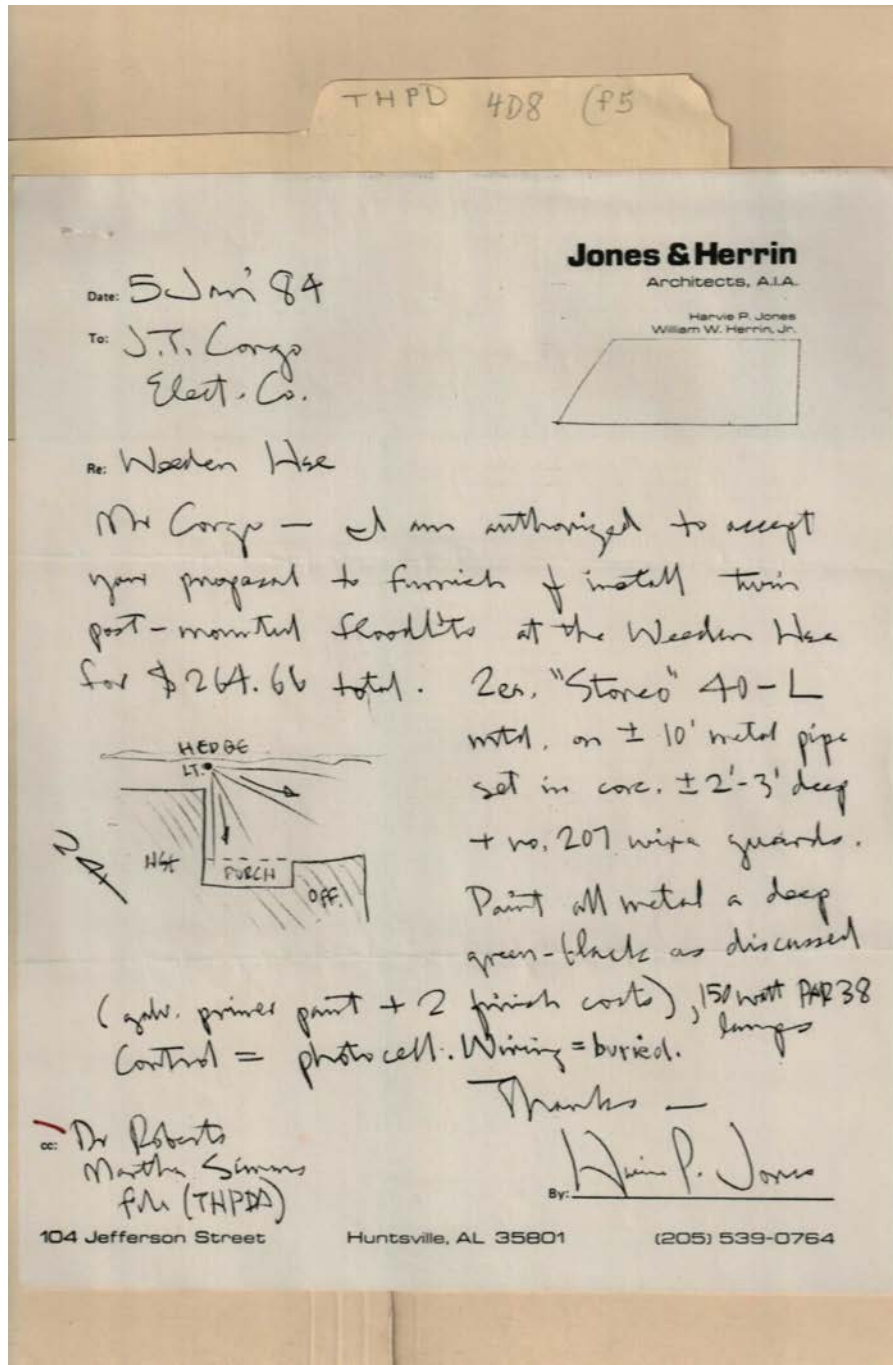 THPD 4D8 (f5
Jones & Herrin
Architects, A.I.A.
Harvie P. Jones
William W. Herrin, Jr.
Date: 5 Jan '84
To: J.T. Congo
Elect. Co.
Re: Weeden Hse
Mr Congo — I am authorized to accept
your proposal to furnish & install twin
post-mounted floodlites at the Weeden Hse
for $264.66 total. 2 ea. "Stonco" 40-L
mtd. on ± 10' metal pipe
set in conc. ± 2'-3' deep
+ no. 207 wire guards.
Paint all metal a deep
green-black as discussed
HEDGE
LT.
HSE
PORCH
OFF.
(galv. primer paint + 2 finish coats), 150 watt PAR 38
lamps
Control = photocell. Wiring = buried.
Thanks —
cc: Dr Roberts
Martha Simms
file (THPDA)
By: Harvie P. Jones
104 Jefferson Street Huntsville, AL 35801 (205) 539-0764